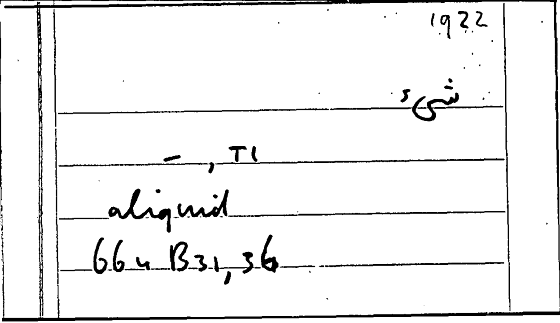 1922
شىء
–, T1
aliquid
66u B31, 36